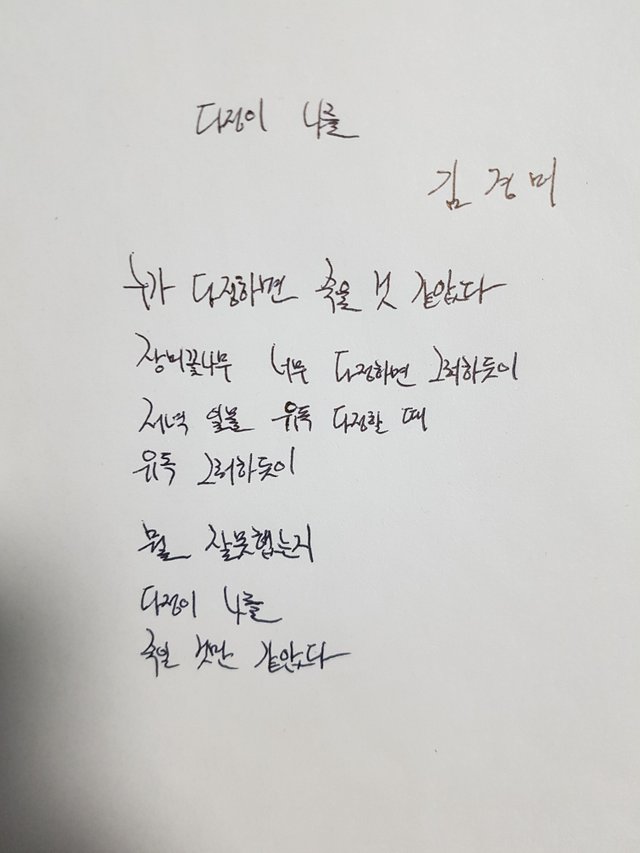 다정이 나를
김경미
누가 다정하면 죽을 것 같았다
장미꽃나무 너무 다정하면 그러하듯이
저녁 일몰 유독 다정할 때
유독 그러하듯이
뭘 잘못했는지
다정이 나를
죽일 것만 같았다